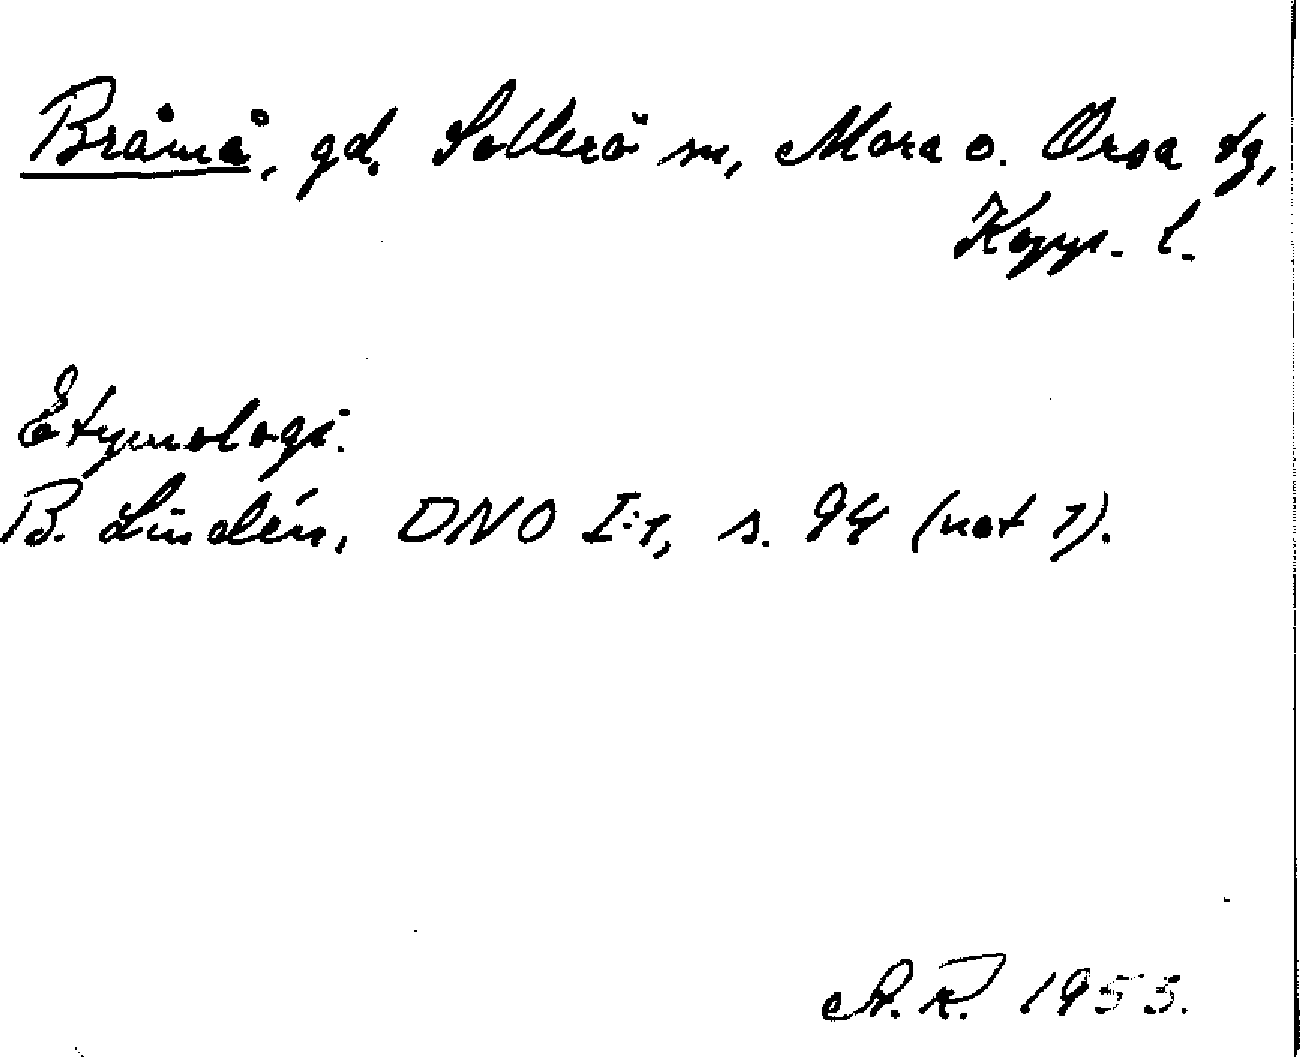 Bråmå, gd. Sollerö sn, Mora o. Orsa tg,
Kopp. l.
Etymologi.
B. Lindén, DNO I:1, s. 94 (not 1).
A.R. 1953.